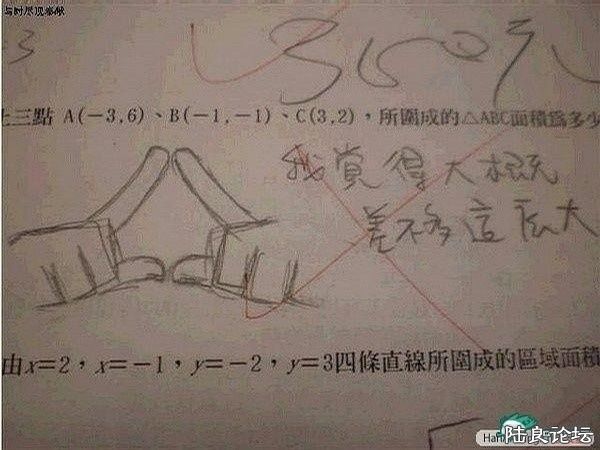 -3
360元
上三點 A(−3,6)、B(−1,−1)、C(3,2)，所圍成的△ABC面積為多少
我覺得大概
差不多這麼大
由x=2，x=−1，y=−2，y=3四條直線所圍成的區域面積
陆良论坛